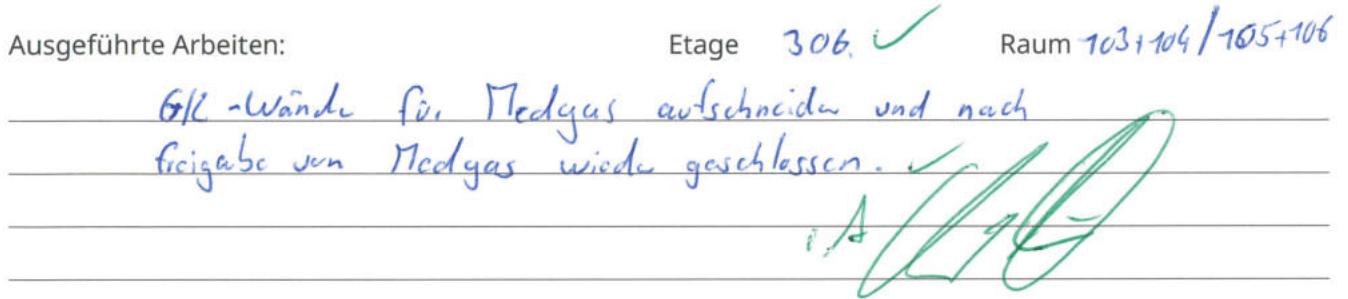 Ausgeführte Arbeiten: Etage 306. ✓ Raum 103+104/105+106
GK-Wände für Medgas aufschneiden und nach
freigabe von Medgas wieder geschlossen. ✓
i.A